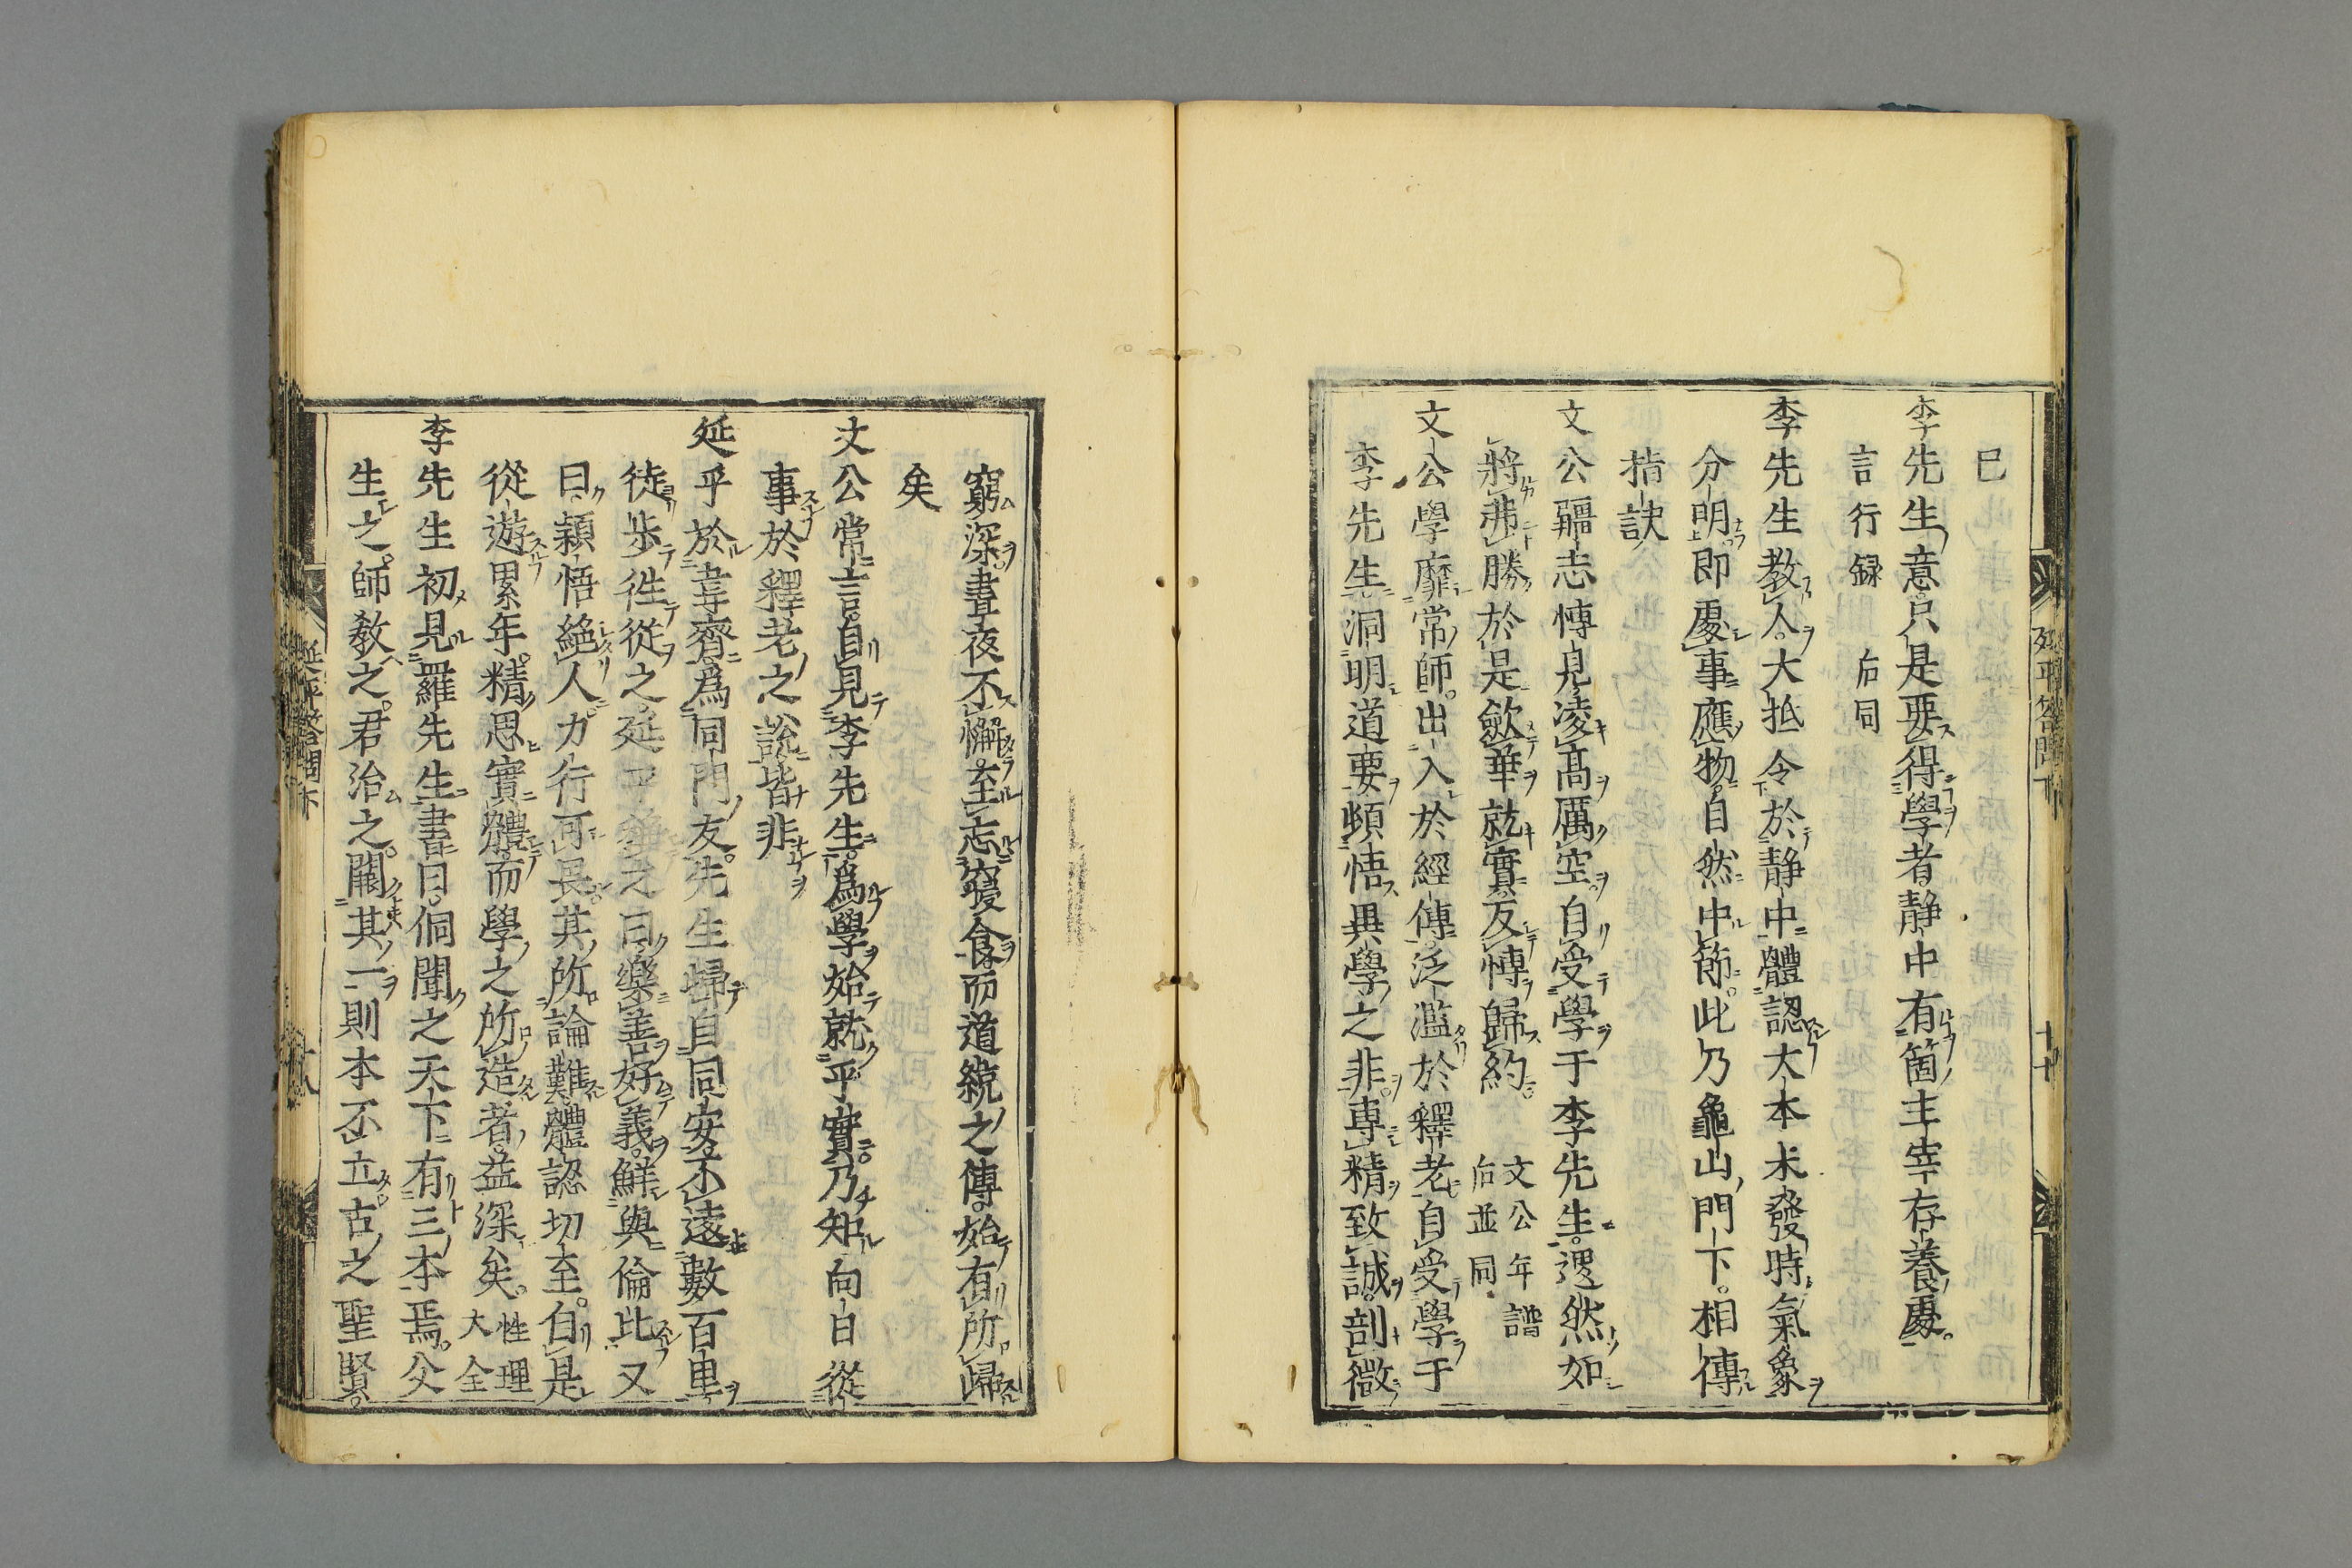 巳
李先生意只是要得學者静中有箇主宰存養處
言行録 后同
李先生教人大抵令於静中體認大本未發時氣象
分明即處事應物自然中節此乃龜山門下相傳
指訣
文公彊志愽見凌髙厲空自受學于李先生退然如
將弗勝於是斂華就實反愽歸約 文公年譜后並同
文公學靡常師出入於經傳泛濫於釋老自受學于
李先生洞明道要頓悟異學之非專精致誠剖微
窮深晝夜不懈至忘寢食而道統之傳始有所歸
矣
文公常言自見李先生為學始就平實乃知向日從
事於釋老之說皆非
延平於韋齋爲同門友先生歸自同安不遠數百里
徒歩徃從之延平稱之曰樂善好義鮮與倫比又
曰穎悟絶人力行可畏其所論難體認切至自是
從遊累年精思實體而學之所造者益深矣 性理大全
李先生初見羅先生書曰侗聞之天下有三本焉父
生之師教之君治之闕其一則本不立古之聖賢
延平答問下 十七
延平答問下 十八